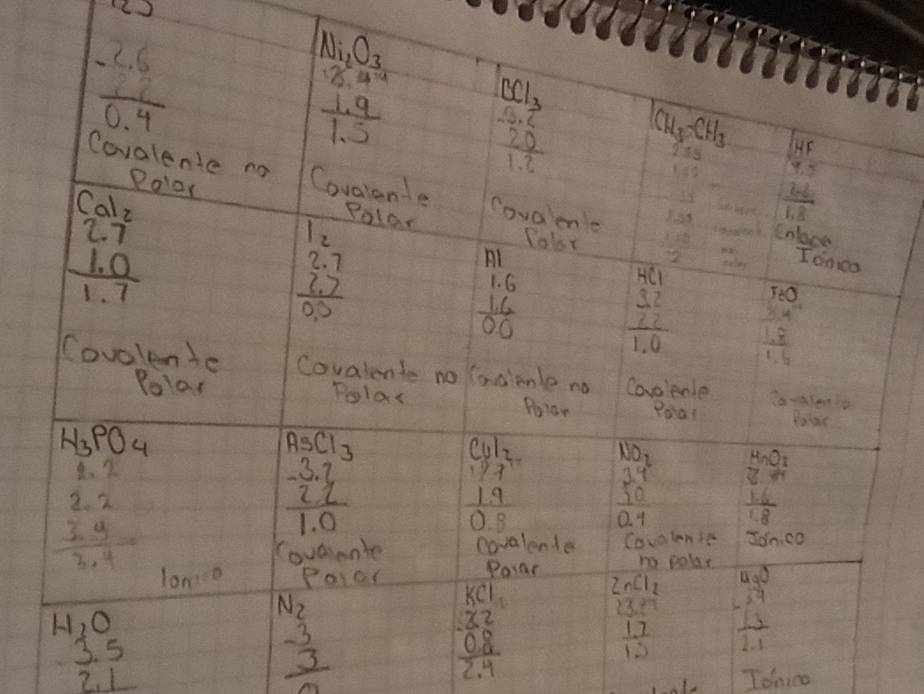 -2.6
2.2
0.4
Covalente no
Polar
Ni2O3
3.4
1.9
1.5
Covalente
Polar
BCl3
-3.2
2.0
1.2
Covalente
Polar
CH3-CH3
2.55
HF
4.0
2.2
1.8
Enlace
Iónico
CaI2
2.7
1.0
1.7
Covalente
Polar
I2
2.7
2.7
0.0
Covalente no
Polar
Al
1.6
1.6
0.0
Covalente no
Polar
HCl
3.2
2.2
1.0
Covalente
Polar
FeO
3.4
1.8
1.6
Covalente
Polar
H3PO4
2.2
2.2
3.4
3.4
Ionico
AsCl3
-3.2
2.2
1.0
Covalente
Polar
CuI2
2.7
1.9
0.8
Covalente
Polar
NO2
3.4
3.0
0.4
Covalente
no polar
MnO2
3.4
1.6
1.8
Iónico
H2O
3.5
2.1
N2
-3
3
0
KCl
-3.2
0.8
2.4
ZnCl2
1.7
1.5
MgO
-3.4
1.3
2.1
Iónico